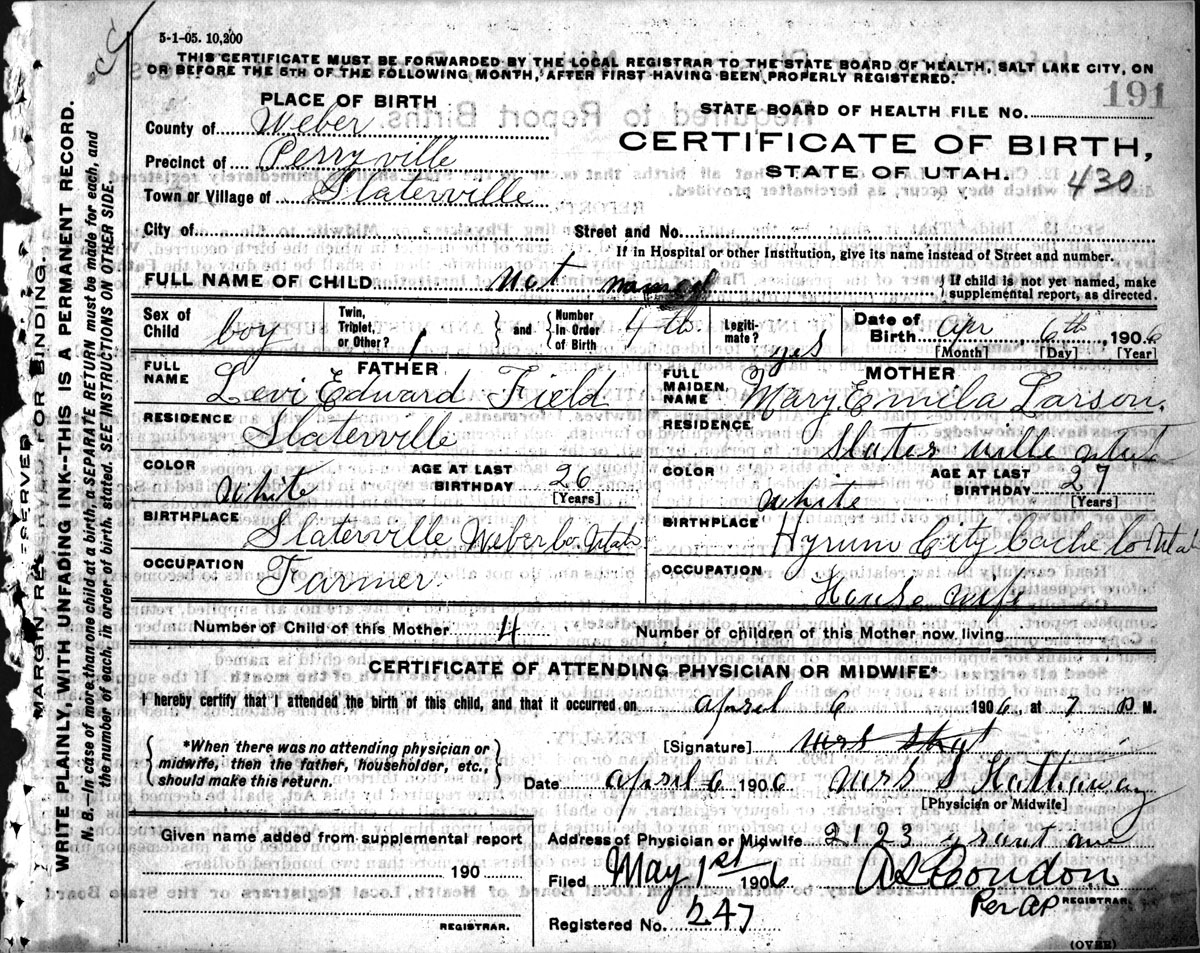 5-1-05. 10,200
THIS CERTIFICATE MUST BE FORWARDED BY THE LOCAL REGISTRAR TO THE STATE BOARD OF HEALTH, SALT LAKE CITY, ON
OR BEFORE THE 5TH OF THE FOLLOWING MONTH, AFTER FIRST HAVING BEEN PROPERLY REGISTERED.
191
PLACE OF BIRTH
STATE BOARD OF HEALTH FILE No.
County of Weber
CERTIFICATE OF BIRTH,
Precinct of Perryville
STATE OF UTAH.
430
Town or Village of Slaterville
City of Street and No.
If in Hospital or other Institution, give its name instead of Street and number.
FULL NAME OF CHILD not named } If child is not yet named, make
supplemental report, as directed.
Sex of Child boy Twin, Triplet, or Other? 1 } and { Number In Order of Birth 4th Legiti-mate? yes Date of Birth Apr 6th, 1906
[Month] [Day] [Year]
FATHER
MOTHER
FULL NAME Levi Edward Field
FULL MAIDEN NAME Mary Emila Larson.
RESIDENCE Slaterville
RESIDENCE Slaterville Utah
COLOR White AGE AT LAST BIRTHDAY 26 [Years]
COLOR white AGE AT LAST BIRTHDAY 27 [Years]
BIRTHPLACE Slaterville Weber Co. Utah
BIRTHPLACE Hyrum City Cache Co Utah
OCCUPATION Farmer
OCCUPATION House wife
Number of Child of this Mother 4 Number of children of this Mother now living
CERTIFICATE OF ATTENDING PHYSICIAN OR MIDWIFE*
I hereby certify that I attended the birth of this child, and that it occurred on April 6 1906, at 7 P M.
{ *When there was no attending physician or
midwife, then the father, householder, etc.,
should make this return. }
[Signature] Mrs
Date April 6 1906 Mrs S Hathaway
[Physician or Midwife]
Given name added from supplemental report
190
REGISTRAR.
Address of Physician or Midwife 2123 Grant ave
Filed May 1st 1906 Condon
Per AP REGISTRAR.
Registered No. 247
(OVER)
MARGIN RESERVED FOR BINDING.
WRITE PLAINLY, WITH UNFADING INK--THIS IS A PERMANENT RECORD.
N. B.--In case of more than one child at a birth, a SEPARATE RETURN must be made for each, and
the number of each, in order of birth, stated. SEE INSTRUCTIONS ON OTHER SIDE.